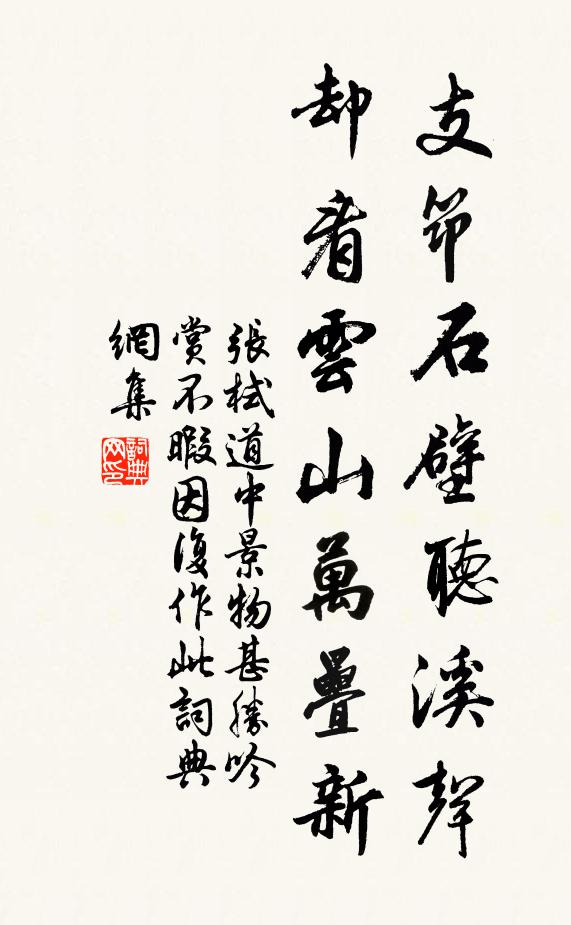 支笻石壁聽溪聲
却看雲山萬疊新
張栻道中景物甚勝吟
賞不暇因復作此詞典
網集
詞典網印